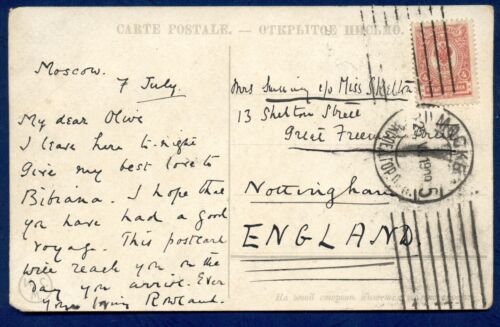 CARTE POSTALE. — ОТКРЫТОЕ ПИСЬМО.
Moscow.
7 July.
My dear Olive
I leave here to-night
Give my best love to
Bibiana. I hope that
you have had a good
voyage. This postcard
will reach you on the
day you arrive. Ever
your loving Rowland.
Mrs c/o Miss Skelton
13 Shelton Street
Great Freeman
Nottingham
ENGLAND.
МОСКВА
На этой стороне